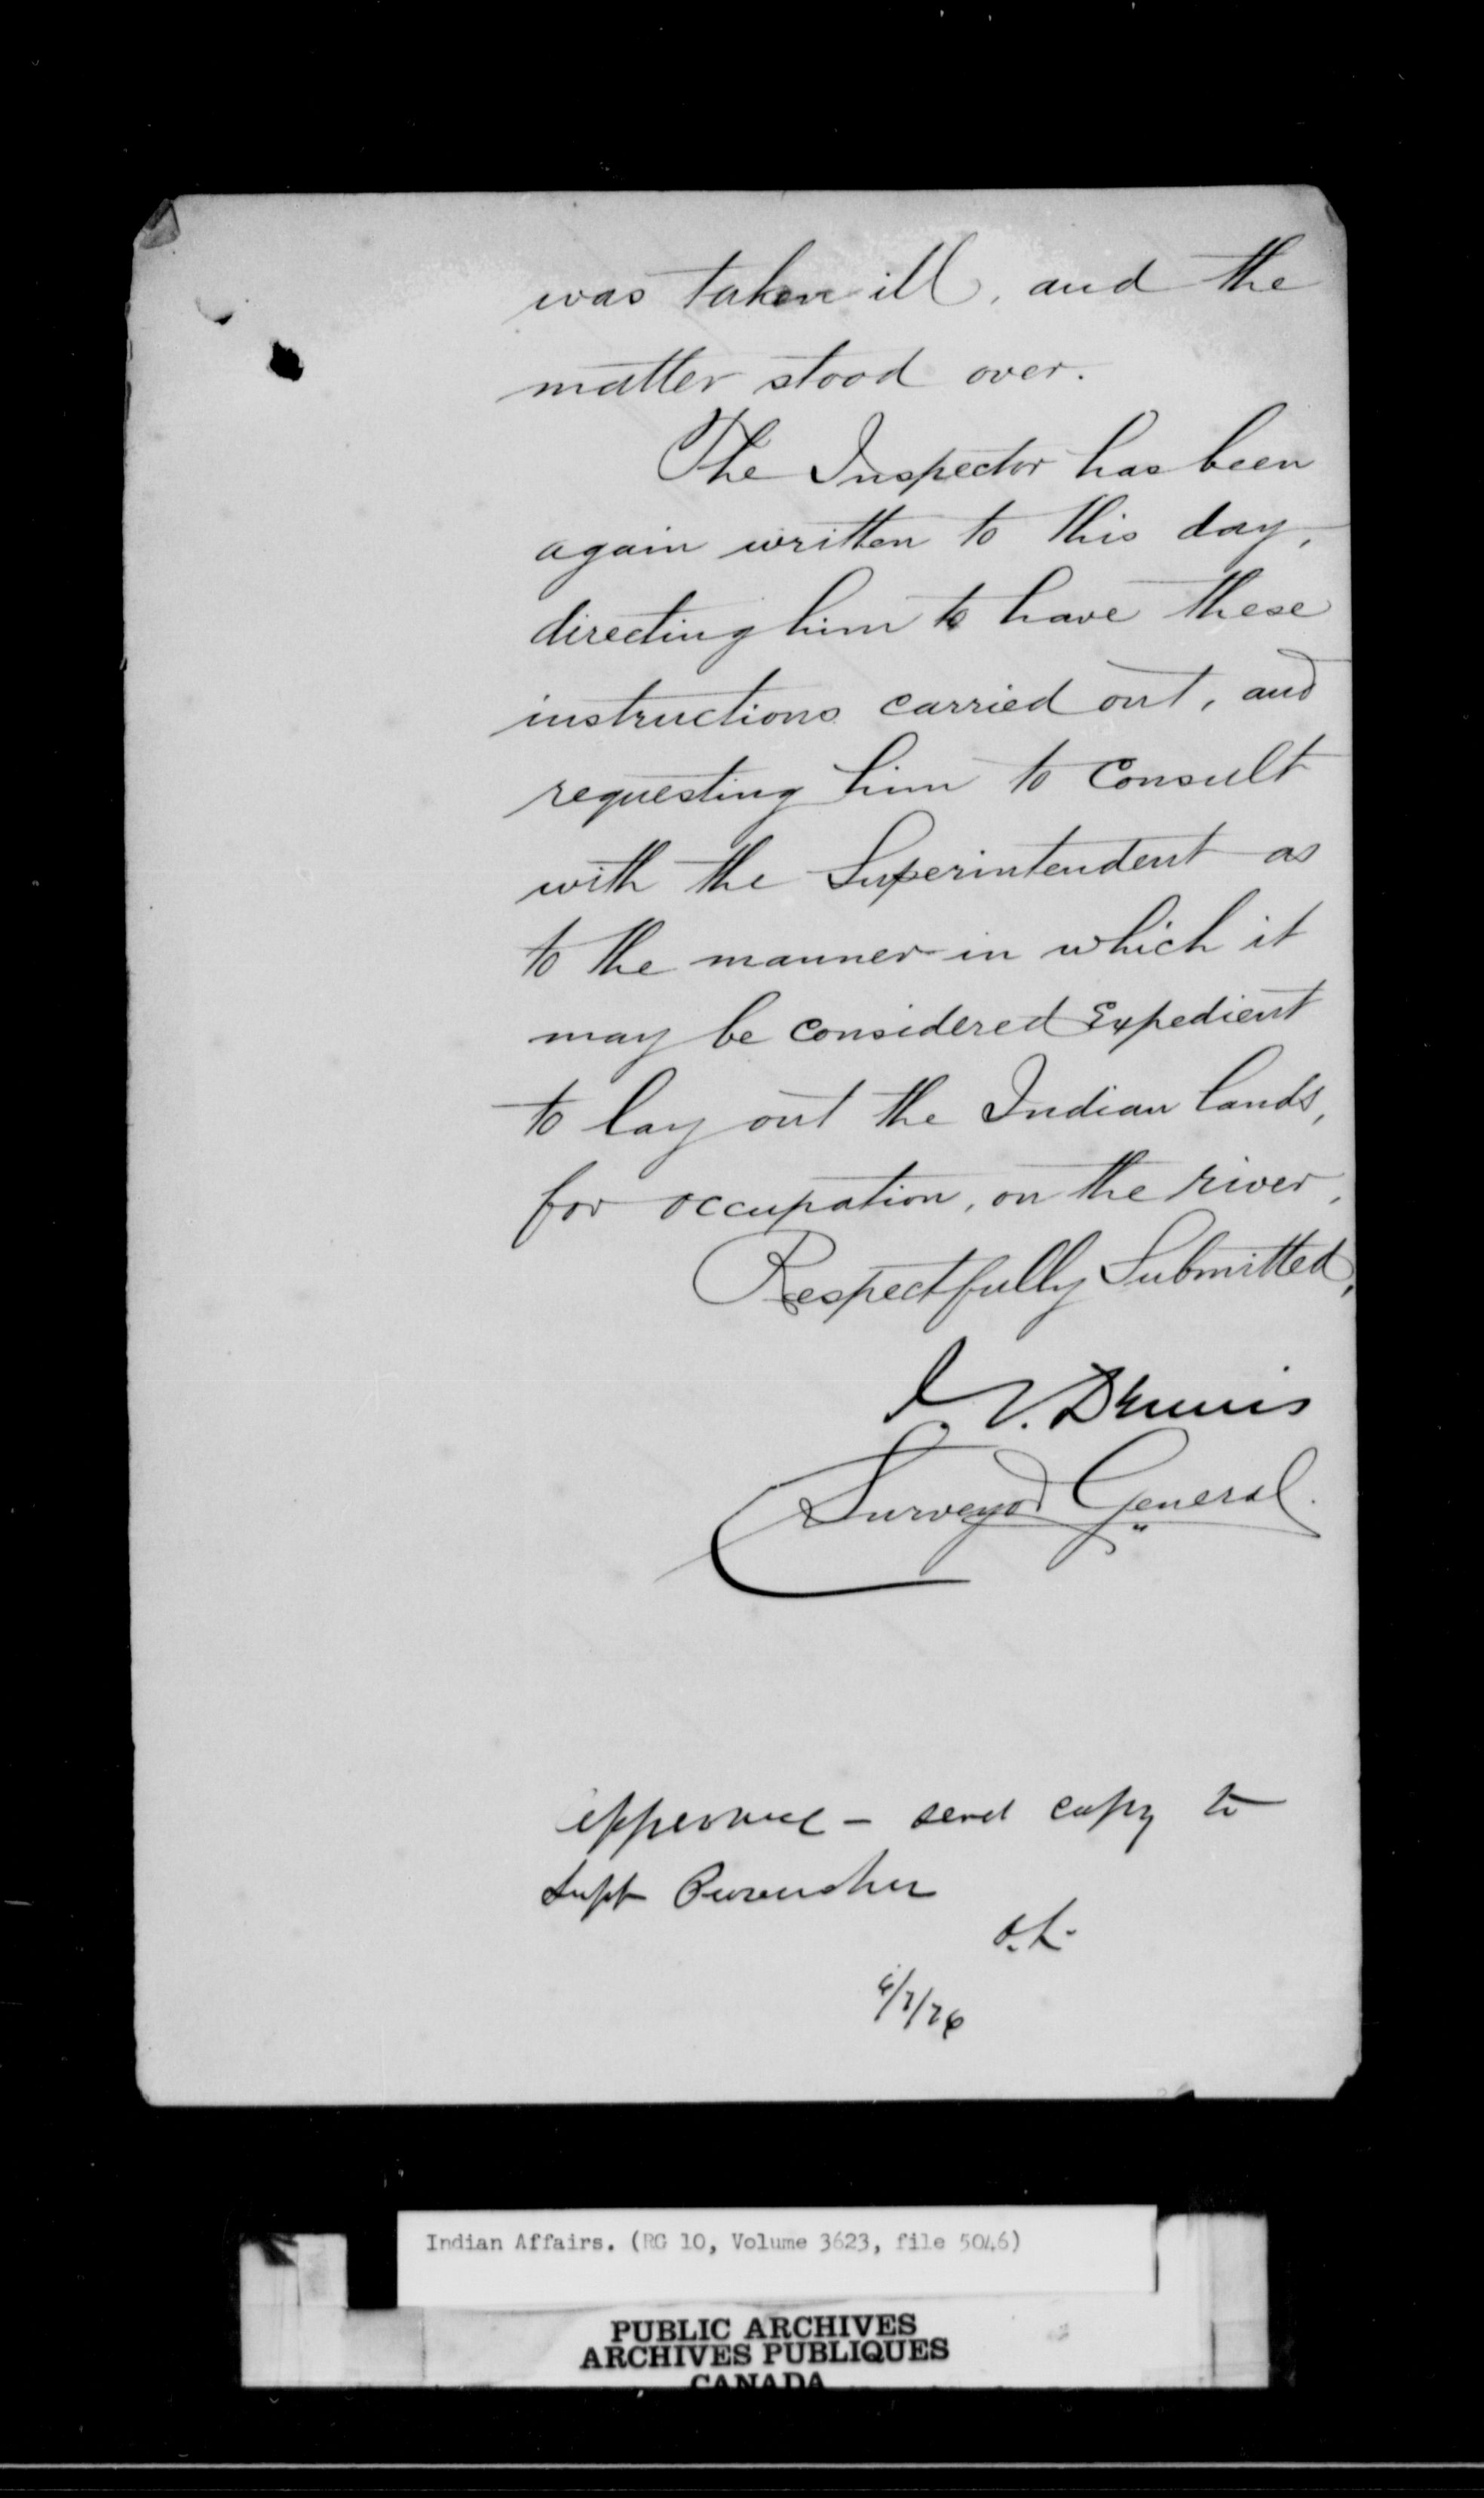 was taken ill, and the
matter stood over.
The Inspector has been
again written to this day,
directing him to have these
instructions carried out, and
requesting him to Consult
with the Superintendent as
to the manner in which it
may be Considered Expedient
to lay out the Indian lands,
for occupation, on the river,
Respectfully Submitted,
J. S. Dennis
Surveyor General.
approved - send copy to
Supt Provencher
D.L.
/7/76
Indian Affairs. (RG 10, Volume 3623, file 5046)
PUBLIC ARCHIVES
ARCHIVES PUBLIQUES
CANADA